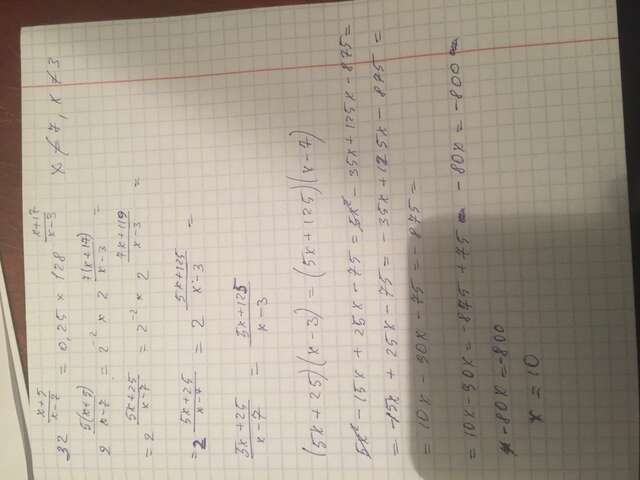 32^{\frac{x+5}{x-7}} = 0,25 × 128^{\frac{x+17}{x-3}} x ≠ 7, x ≠ 3
2^{\frac{5(x+5)}{x-7}} = 2^{-2} × 2^{\frac{7(x+17)}{x-3}} =
= 2^{\frac{5x+25}{x-7}} = 2^{-2} × 2^{\frac{7x+119}{x-3}} =
= 2^{\frac{5x+25}{x-7}} = 2^{\frac{5x+125}{x-3}} =
\frac{5x+25}{x-7} = \frac{5x+125}{x-3}
(5x+25)(x-3) = (5x+125)(x-7)
5x² - 15x + 25x - 75 = 5x² - 35x + 125x - 875 =
= -15x + 25x - 75 = -35x + 125x - 875 =
= 10x - 90x - 75 = -875 =
= 10x - 90x = -875 + 75 - 80x = -800
-80x = -800
x = 10